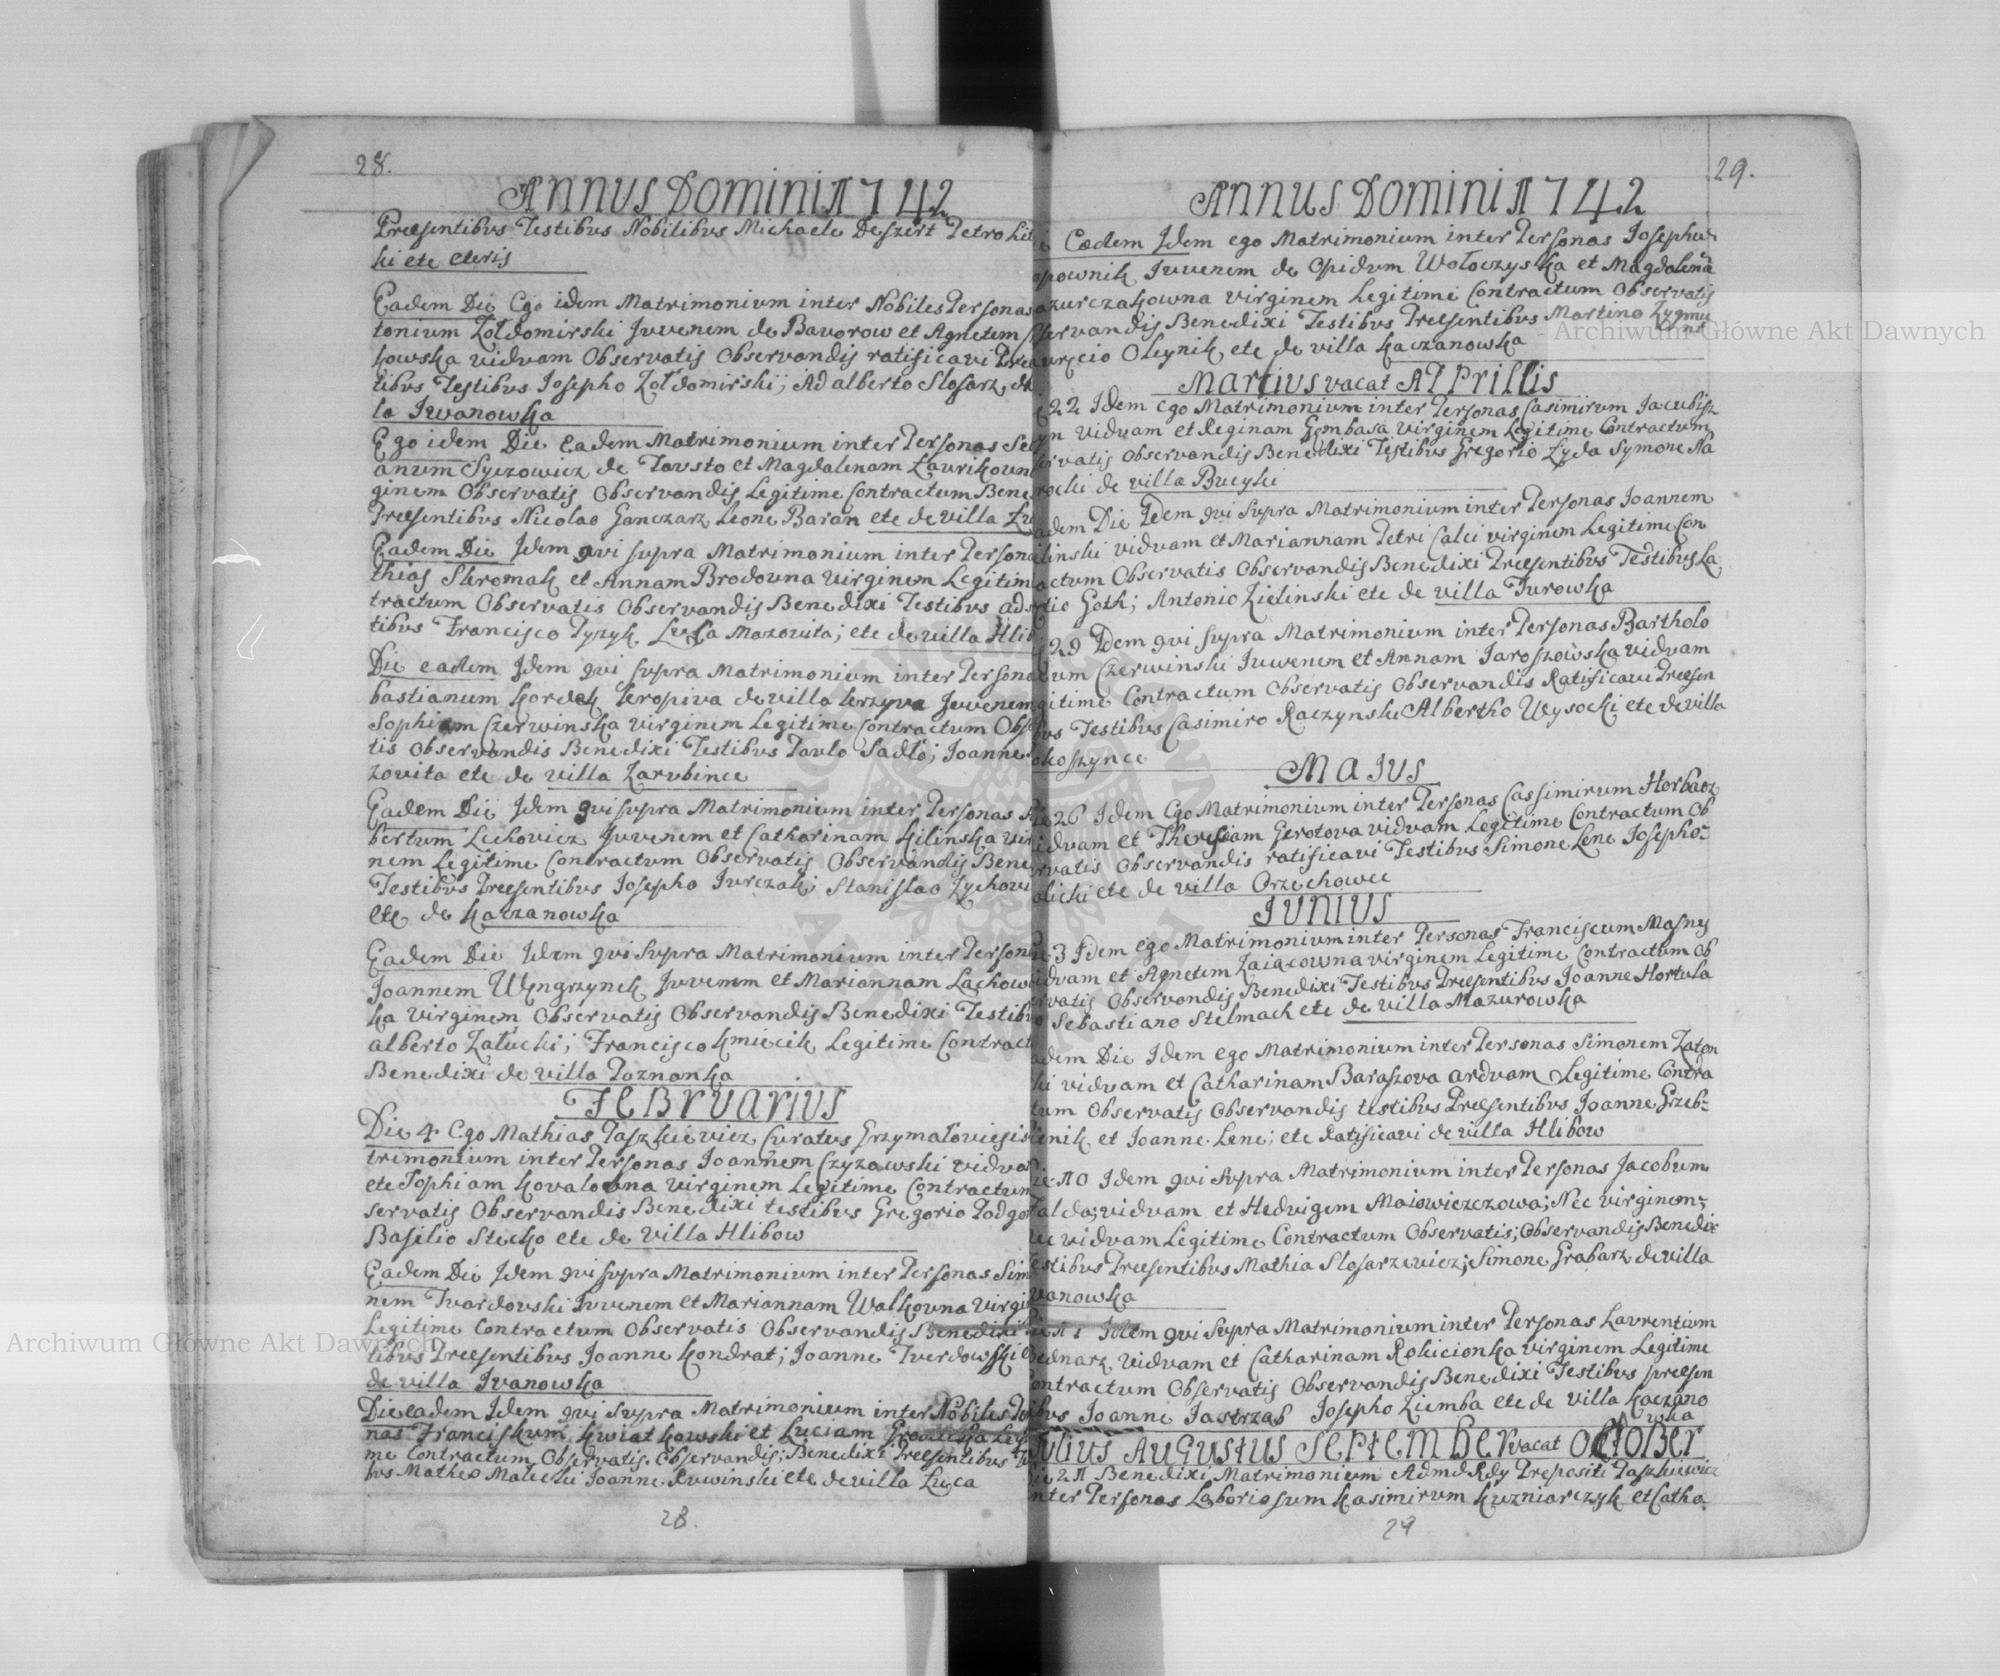 28.
Annus Domini 1742
Preesentibus Testibus Nobilibus Michaele Deszert Petro Lit
ki etc eteris
Eadem Die Ego idem Matrimonium inter Nobiles Personas
tonium Zołdomirski Juvenem de Bavorow et Agnetem
kowska viduam Observatis Observandis ratificavi Preesen
tibus Testibus Josepho Zołdomirski; Adalberto Slosarz, de
la Iwanowka
Ego idem Die Eadem Matrimonium inter Personas Se
anum Syczowicz de Tousto et Magdalenam Laurikown
ginem Observatis Observandis Legitime Contractum Bene
Preesentibus Nicolao Ganczarz Leone Baran etc de villa Lu
Eadem Die Idem qui supra Matrimonium inter Persona
thias Skromak et Annam Brodovna virginem Legitim
tractum Observatis Observandis Benedixi Testibus ads
tibus Francisco Pyzyk Luka Mazovita; etc de villa Hlib
Die eadem Idem qui supra Matrimonium inter Persona
bastianum Kordek Kropiva de villa Krzyva Juvenem
Sophiam Czerwinska virginem Legitime Contractum Obs
tis Observandis Benedixi Testibus Paulo Sadło; Joanne
zovita etc de villa Zarubince
Eadem Die Idem qui supra Matrimonium inter Personas
bertum Lechovicz Juvenem et Catharinam Hilinska vir
nem Legitime Contractum Observatis Observandis Bene
Testibus Preesentibus Josepho Jurczak; Stanislao Zychow
etc de Kaczanowka
Eadem Die Idem qui Supra Matrimonium inter Person
Joannem Węngrzynek Juvenem et Mariannam Lachow
ka virginem Observatis Observandis Benedixi Testib
alberto Załucki; Francisco Kmiecik Legitime Contract
Benedixi de villa Poznanka
Februarius
Die 4 Ego Mathias Paszkievicz Curatus Grzymałoviesis
trimonium inter Personas Joannem Czyzowski vidua
etc Sophiam Kovalovna virginem Legitime Contractum
servatis Observandis Benedixi testibus Gregorio Podgo
Basilio Stecko etc de villa Hlibow
Eadem Die Idem qui supra Matrimonium inter Personas Sim
nem Tvardovski Juvenem et Mariannam Walkovna virgi
Legitime Contractum Observatis Observandis Benedixi
tibus Preesentibus Joanne Kondrat; Joanne Tverdowski
de villa Ivanowka
Die eadem Idem qui supra Matrimonium inter Nobiles Pe
nas Franciskum Kwiatkowski et Luciam Leg
me Contractum Observatis Observandis; Benedixi Preesentibus
bus Matheo Malecki Joanne Ruwinski etc de villa Luca
28.
29.
Annus Domini 1742
Eadem Idem ego Matrimonium inter Personas Josephu
opownik Juvenem de Opidum Wołoczyska et Magdalena
azurczakowna virginem Legitime Contractum Observatis
servandis Benedixi Testibus Preesentibus Martino Zygmu
nt
urecio Oleynik etc de villa Kaczanowka
Martius vacat Apprillis
22 Idem ego Matrimonium inter Personas Casimirum Jacubisz
yn viduam et Reginam Gembasa virginem Legitime Contractum
servatis Observandis Benedixi Testibus Gregorio Zyda Symone Na
rocki de villa Bucyki
adem Die Idem qui supra Matrimonium inter Personas Joannem
ilinski viduam et Mariannam Petri Calei virginem Legitime Con
actum Observatis Observandis Benedixi Preesentibus Testibus La
tio Goth; Antonio Zielinski etc de villa Turowka
29 Idem qui supra Matrimonium inter Personas Bartholo
eum Czerwinski Iuvenem et Annam Jaroszowska viduam
gitime Contractum Observatis Observandis Ratificavi Preesen
bus Testibus Casimiro Raczynski Albertho Wysocki etc de villa
okoszynce
Majus
26 Idem Ego Matrimonium inter Personas Cassimirum Horbacz
iduam et Theresiam Gerotova viduam Legitime Contractum Ob
rvatis Observandis ratificavi Testibus Simone Lene Josepho
olicki etc de villa Orzechowce
Junius
3 Idem ego Matrimonium inter Personas Franciscum Masny
iduam et Agnetem Zaiącowna virginem Legitime Contractum Ob
rvatis Observandis Benedixi Testibus Preesentibus Joanne Hortula
o Sebastiano Stelmach etc de villa Mazurowka
adem Die Idem ego Matrimonium inter Personas Simonem Zaton
ki viduam et Catharinam Baraszova arduam Legitime Contra
tum Observatis Observandis testibus Preesentibus Joanne Grzeb=
ienik et Joanne Lene; etc Ratificavi de villa Hlibow
ie 10 Idem qui supra Matrimonium inter Personas Jacobum
alda; viduam et Hedvigem Maiowiczczowa; Nec virginem;
ec viduam Legitime Contractum Observatis; Observandis Benedix
estibus Preesentibus Mathia Slosarzevicz; Simone Grabarz de villa
vanowka
ie 11 Idem qui supra Matrimonium inter Personas Laurentium
Bednarz viduam et Catharinam Rokicionka virginem Legitime
ontractum Observatis Observandis Benedixi Testibus preesen
ibus Joanne Jastrząb Josepho Ziemba etc de villa Kaczano
wka
Julius Augustus September vacat October
ie 21 Benedixi Matrimonium Admd Rdy Prepositi Paszkiewicz
nter Personas Laboriosum Kasimirum Kuzniarczyk et Catha
29
Archiwum Główne Akt Dawnych
Archiwum Główne Akt Dawnych